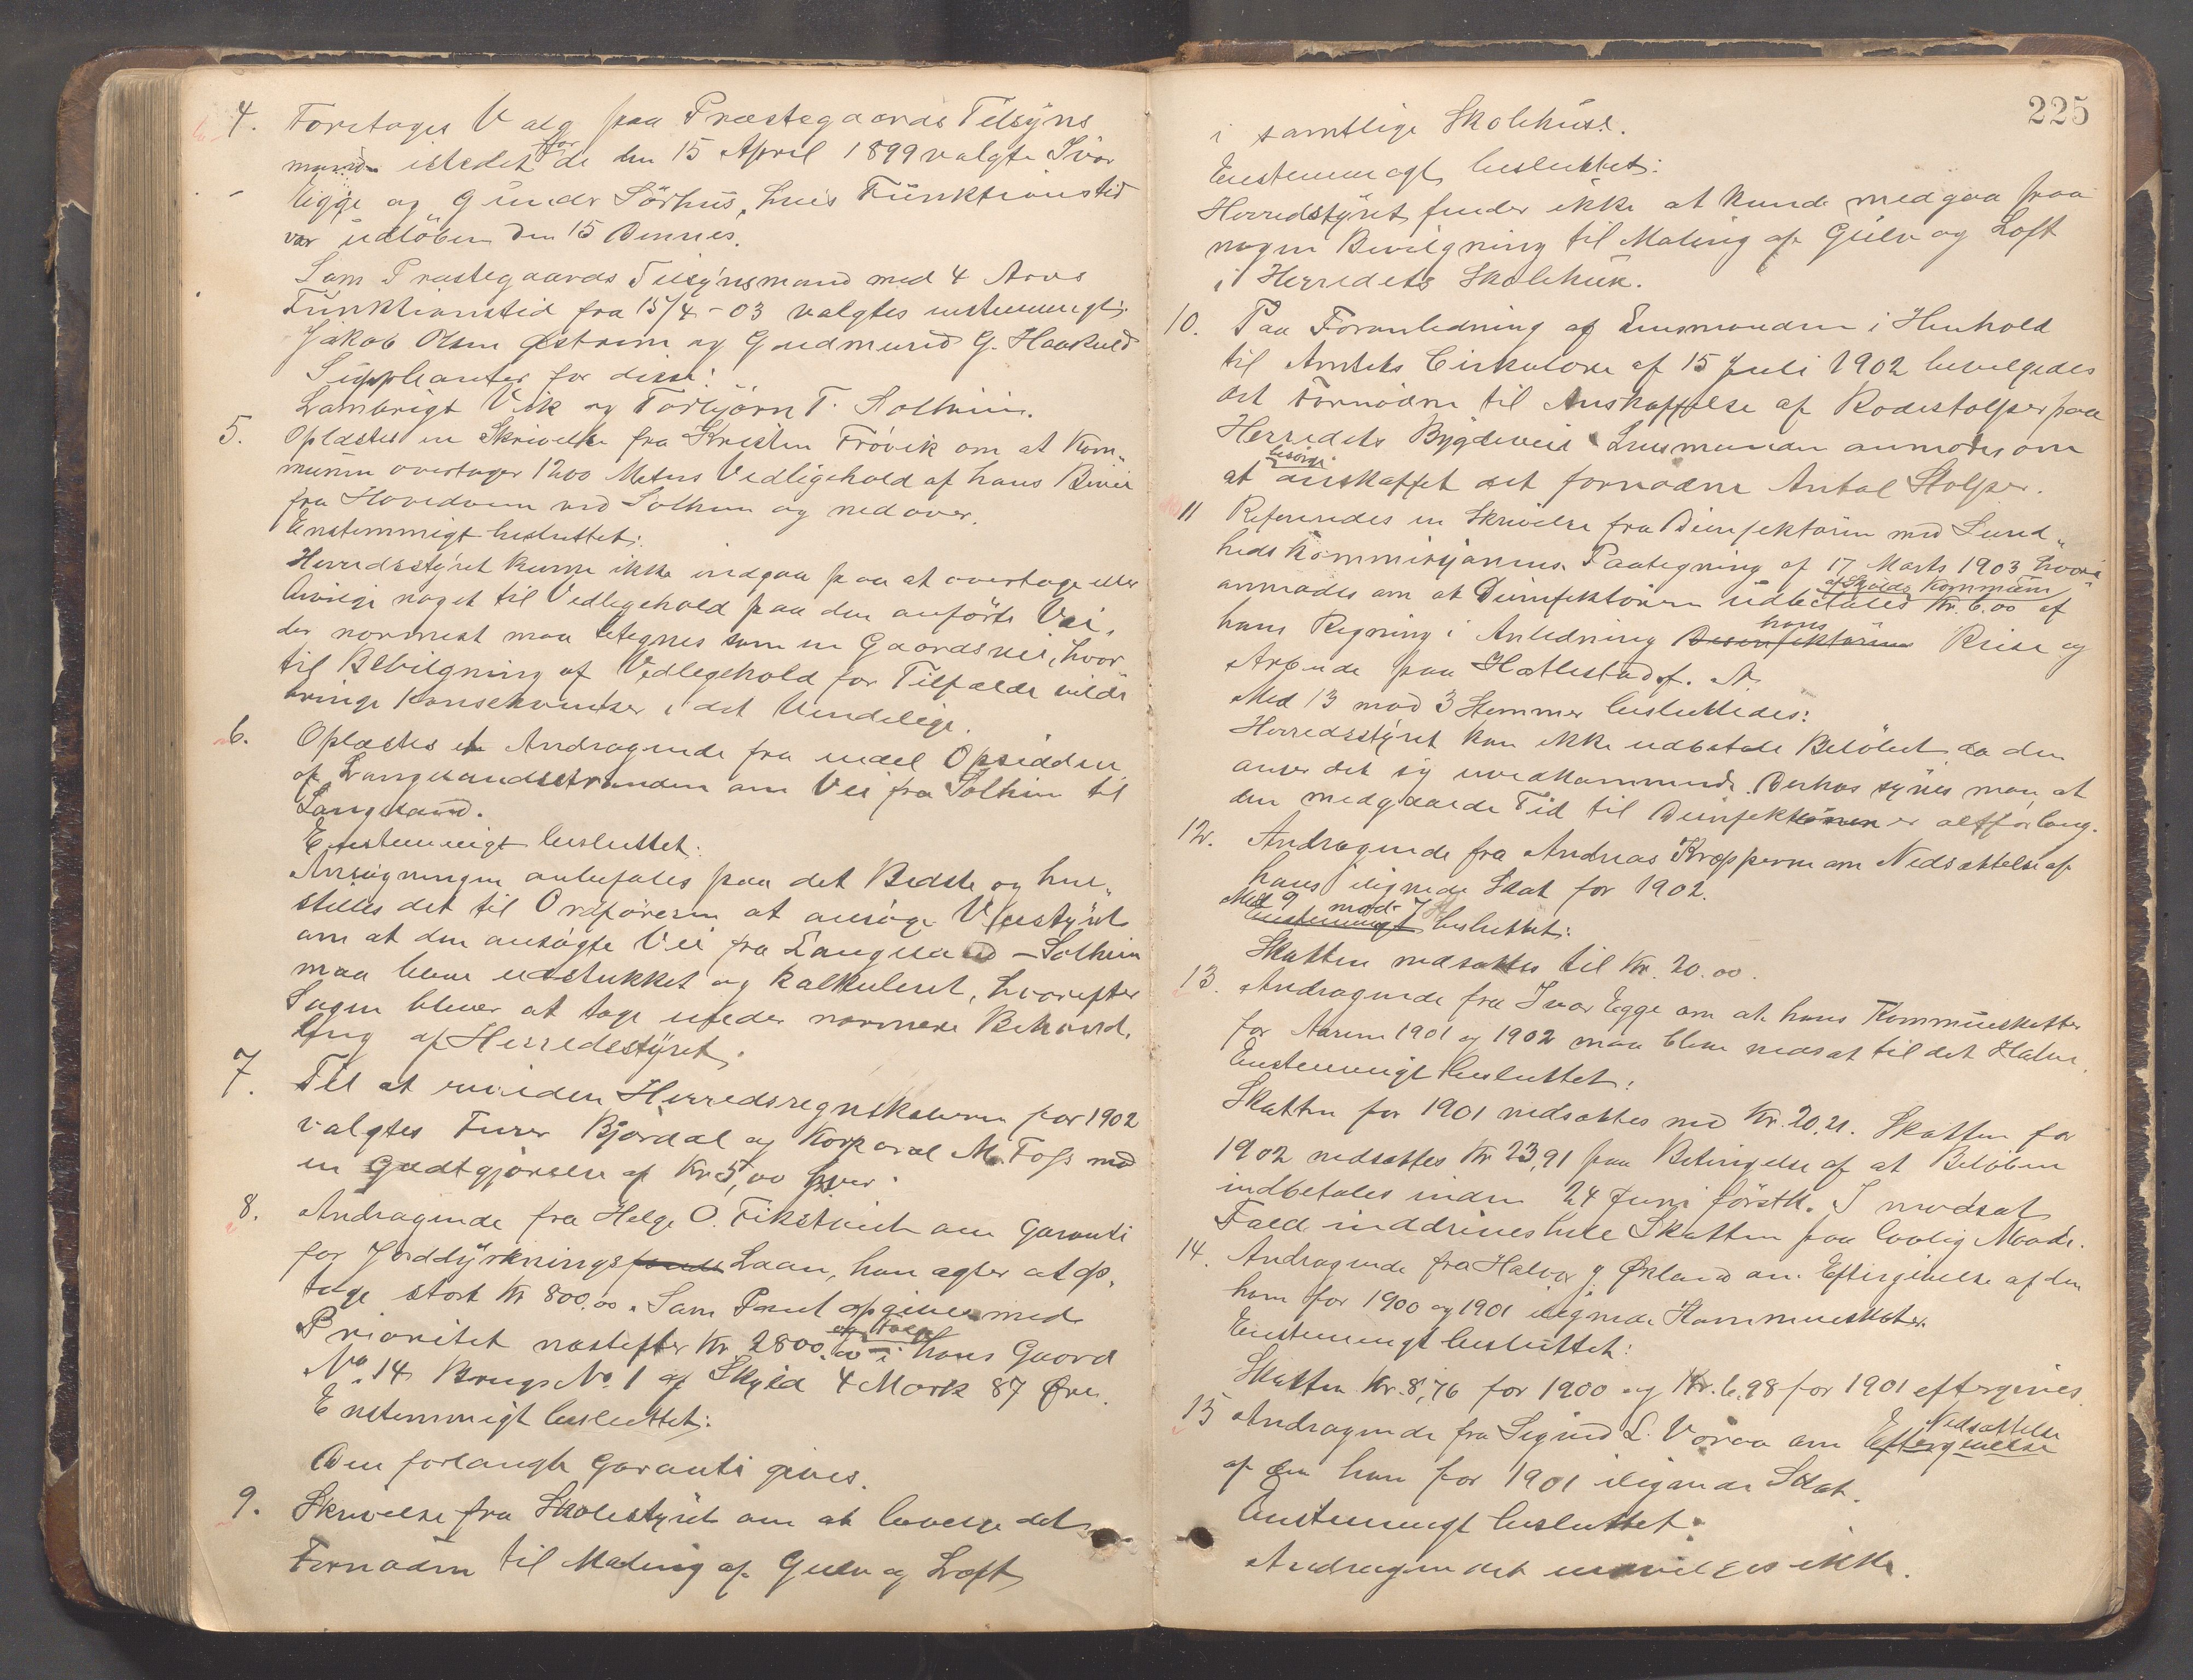 4. Foretoges Valg paa Præstegaards Tilsyns
mænd istedetfor de den 15 April 1899 valgte Ivar
Egge og Gunder Sørhus, hvis Funktionstid
var udløben den 15 Dennes.
Som Præstegaards Tilsynsmænd med 4 Aars
Funktionstid fra 15/4-03 valgtes enstemmigt:
Jakob Olsen Østrem og Gudmund G. Haaskuld
Suppleanter for disse:
Lambrigt Vik og Torbjørn T. Solheim.
5. Oplæstes en Skrivelse fra Kristen Frøvik om at Kom„
munen overtager 1200 Meters Vedligehold af hans Bivei
fra Hovedveien ved Solheim og nedover.
Enstemmigt besluttet:
Herredsstyret kunne ikke indgaa paa at overtage eller
bevilge noget til Vedligehold paa den anførte Vei,
der nærmest maa betegnes som en Gaardsvei, hvor
til Bevilgning af Vedlegehold for Tilfælde vilde
bringe Konsekventser i det Uendelige.
6. Oplæstes et Andragende fra endel Opsiddere
af Langelandsstranden om Vei fra Solheim til
Langeland.
Enstemmigt besluttet:
Ansøgningen anbefales paa det Bedste og hen„
stilles det til Ordføreren at ansøge Veistyret
om at den ansøgte Vei fra Langeland – Solheim
maa blive udstukket og kalkuleret, hvorefter
Sagen bliver at tage under nærmere Behand„
ling af Herredsstyret.
7. Til at revidere Herredsregnskaberne for 1902
valgtes Furer Bjordal og Korporal M. Foss med
en Godtgjørelse af Kr 5,00 hver.
8. Andragende fra Helge O. Fikstveit om Garanti
for Jorddyrkningsfonds Laan, han agter at op„
tage stort Kr 800,00. Som Pant opgives med
Prioritet næstefter Kr 2800,00 i hans Gaard
No 14 Brugs No 1 af Skyld 4 Mark 87 Øre.
Enstemmigt besluttet:
Den forlangte Garanti gives.
9. Skrivelse fra Skolestyret om at bevilge det
Fornødne til Maling af Gulv og Loft
225
i samtlige Skolehuse.
Enstemmigt besluttet:
Herredstyret finder ikke at kunde medgaa paa
nogen Bevilgning til Maling af Gulv og Loft
i Herredets Skolehuse.
10. Paa Foranledning af Lensmanden i Henhold
til Amtets Cirkulære af 15 Juli 1902 bevilgedes
det Fornødne til Anskaffelse af Rodestolper paa
Herredets Bygdeveie. Lensmanden anmodes om
at besørge anskaffet det fornødne Antal Stolper.
11 Refereredes en Skrivelse fra Desinfektøren med Sund„
hedskommissjonens Paategning af 17 Marts 1903 hvori
anmodes om at Desinfektøren udbetales af Skolds Kommune Kr. 6.00 af
hans Regning i Anledning Desinfektørens hans Reise og
Arbeide paa Hatlestad f. A.
Med 13 mod 3 Stemmer besluttedes:
Herredsstyret kan ikke udbetale Beløbet, da den
anser det sig uvedkommende. Derhos synes man, at
den medgaaede Tid til Desinfektionen er altfor lang.
12. Andragende fra Andreas Kroppevne om Nedsættelse af
hans ilignede Skat for 1902.
Med 9 mod 7 St
Enstemmigt besluttet:
Skatten nedsættes til Kr. 20.00.
13. Andragende fra Ivar Egge om at hans Kommuneskatter
for Aarene 1901 og 1902 maa blive nedsat til det Halve.
Enstemmigt besluttet:
Skatten for 1901 nedsættes med Kr. 20,21. Skatten for
1902 nedsættes Kr 23,91 paa Betingelse af at Beløbene
indbetales inden 24 Juni førstk. I modsat
Fald inddrives hele Skatten paa lovlig Maade.
14. Andragende fra Halvor J. Økland om Eftergivelse af den
ham for 1900 og 1901 ilignede Kommuneskatter.
Enstemmigt besluttet:
Skatten Kr. 8,76 for 1900 og Kr. 6,98 for 1901 eftergives.
15 Andragende fra Sigurd L. Vøraa om Eftergivelse Nedsættelse
af den ham for 1901 ilignede Skat.
Enstemmigt besluttet:
Andragendet indvilges ikke.